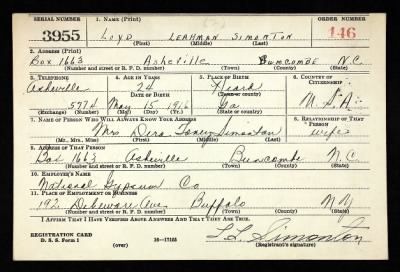 SERIAL NUMBER 1. NAME (Print) ORDER NUMBER
3955 LOYD LEAHMAN SIMONTON 146
(First) (Middle) (Last)
2. ADDRESS (Print)
Box 1663 Asheville Buncombe N.C.
(Number and street or R. F. D. number) (Town) (County) (State)
3. TELEPHONE 4. AGE IN YEARS 5. PLACE OF BIRTH 6. COUNTRY OF CITIZENSHIP
Asheville 24 Heard
DATE OF BIRTH (Town or county)
5774 May 15, 1916 Ga U.S.A.
(Exchange) (Number) (Mo.) (Day) (Yr.) (State or country)
7. NAME OF PERSON WHO WILL ALWAYS KNOW YOUR ADDRESS 8. RELATIONSHIP OF THAT PERSON
Mrs Simonton wife
(Mr., Mrs., Miss) (First) (Middle) (Last)
9. ADDRESS OF THAT PERSON
Box 1663 Asheville Buncombe N.C.
(Number and street or R. F. D. number) (Town) (County) (State)
10. EMPLOYER'S NAME
National Gypsum Co
11. PLACE OF EMPLOYMENT OR BUSINESS
192 Deleware Ave Buffalo NY
(Number and street or R. F. D. number) (Town) (County) (State)
I AFFIRM THAT I HAVE VERIFIED ABOVE ANSWERS AND THAT THEY ARE TRUE.
REGISTRATION CARD
D. S. S. Form 1 16—17105 L.L. Simonton
(over) (Registrant's signature)